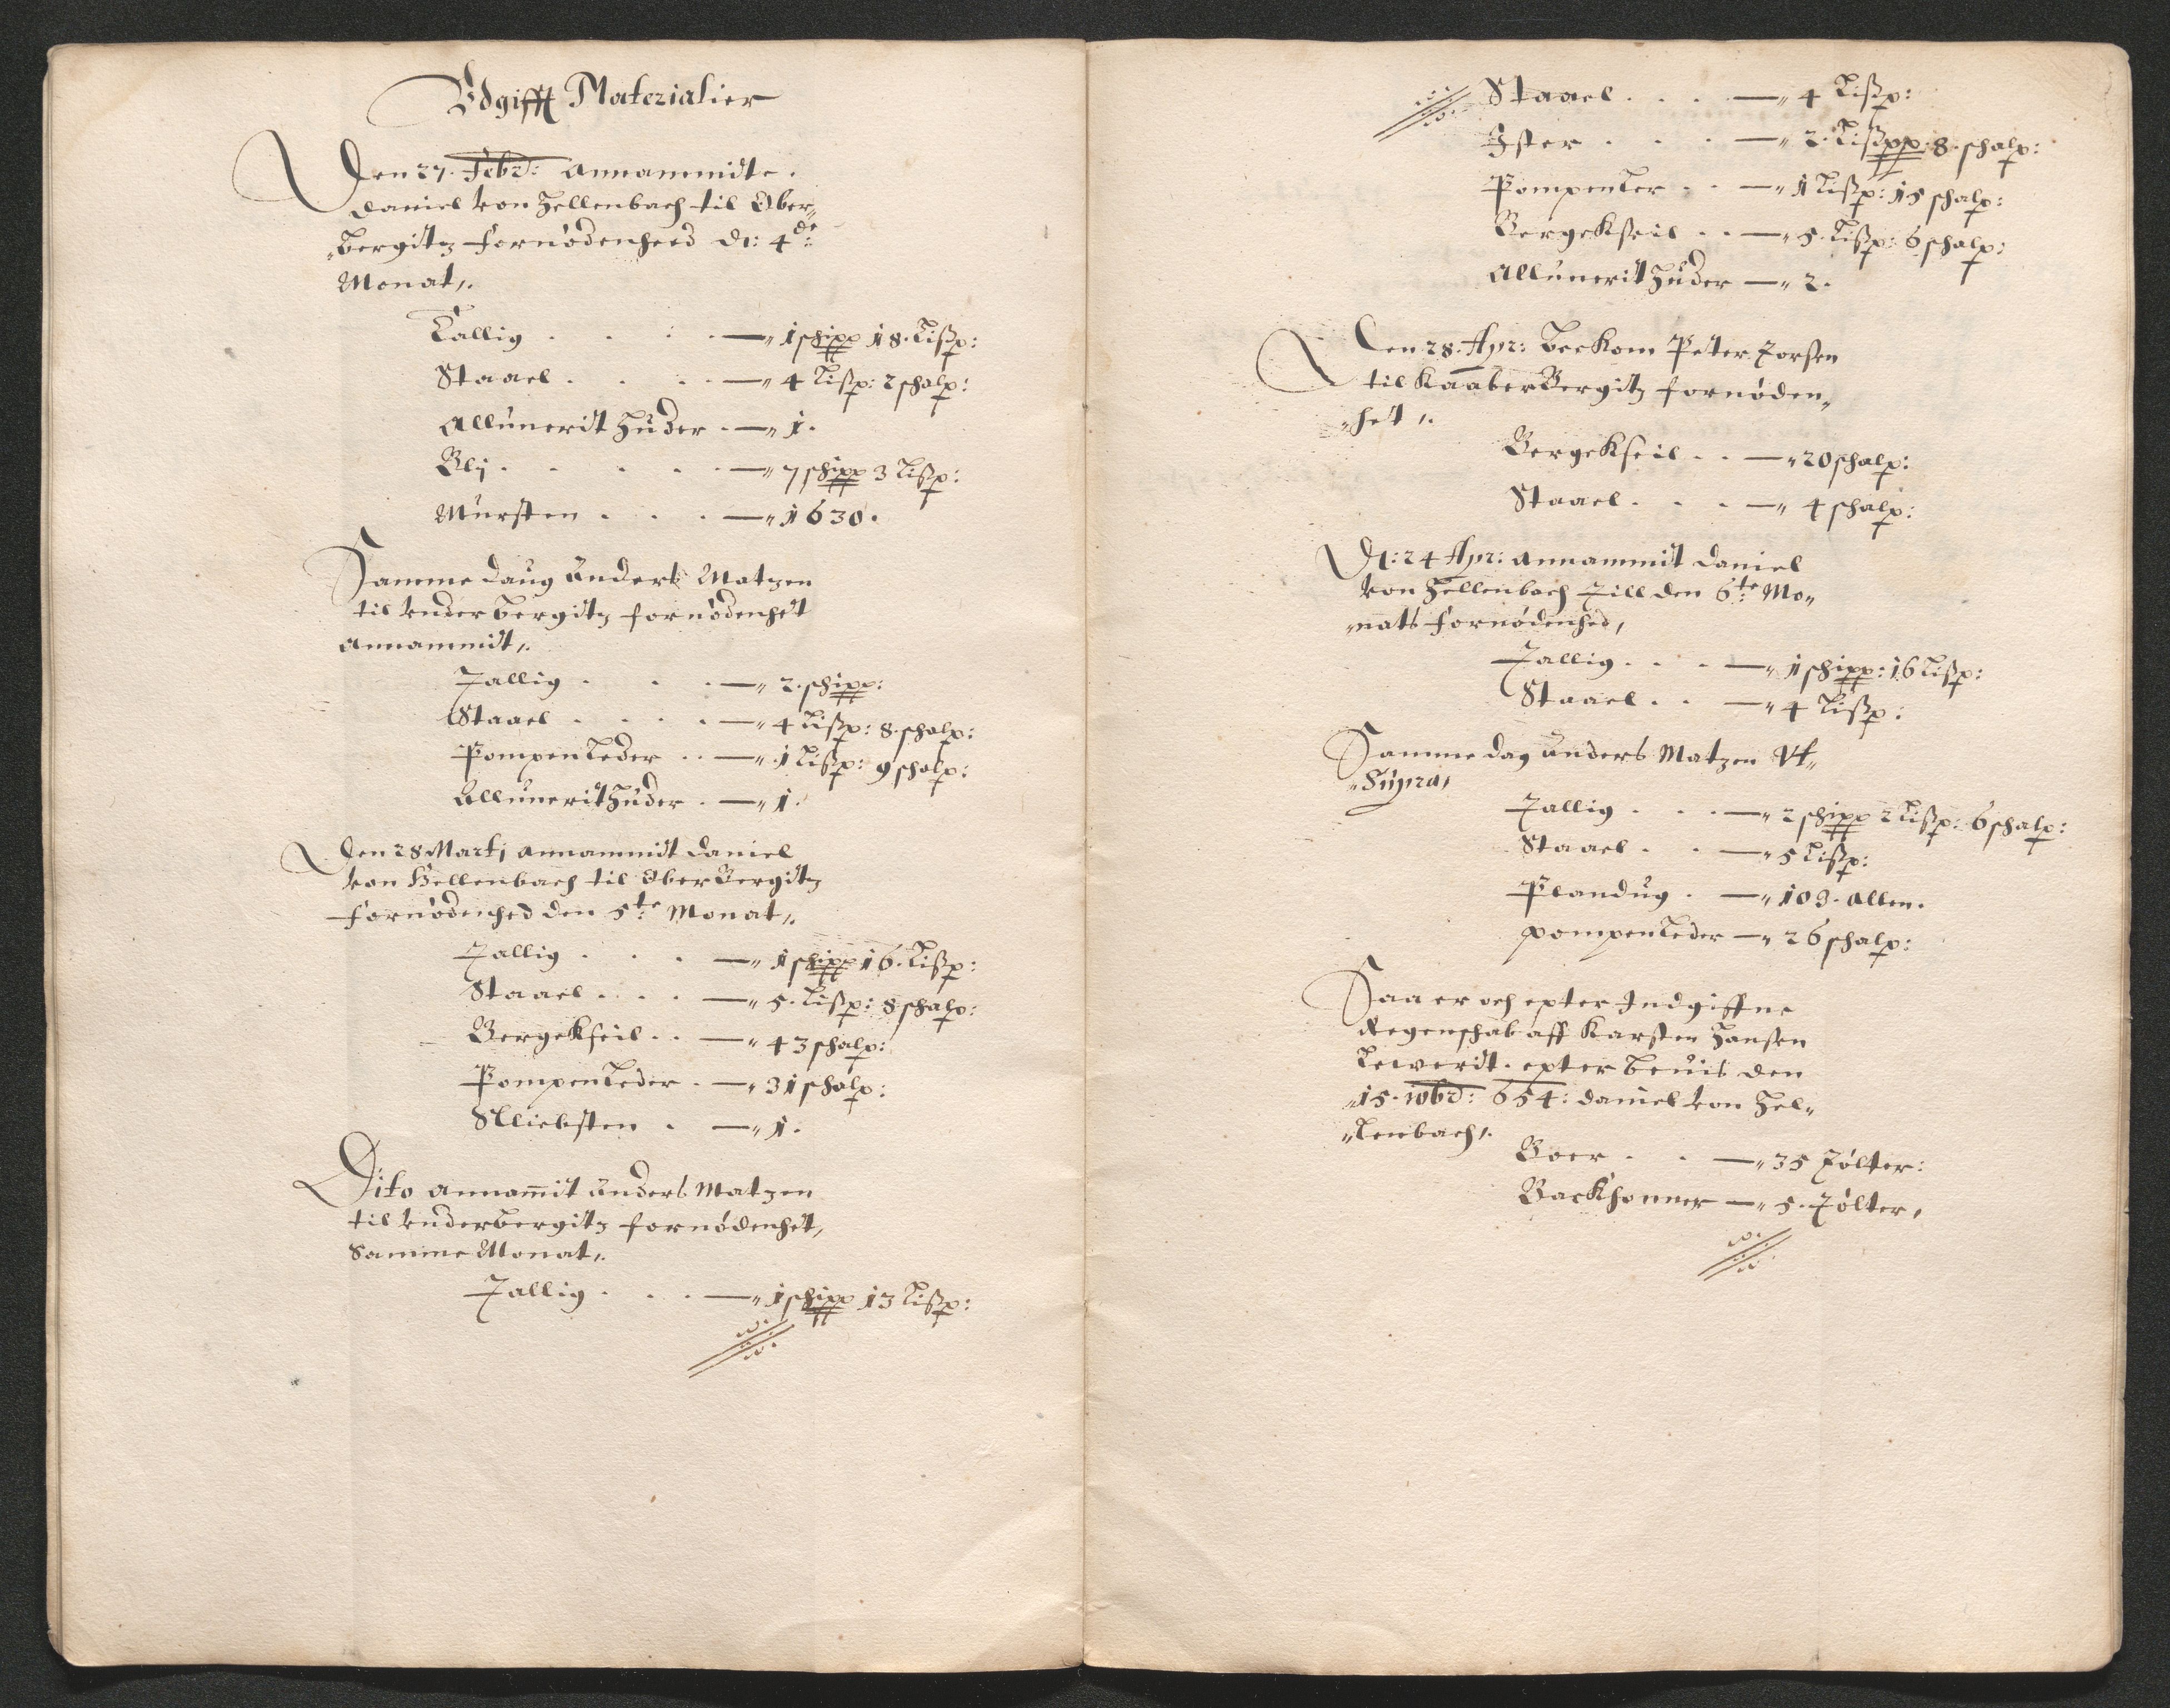 Udgifft Materialier
Den 27. Febr: annammidte.
Daniel von Hellenbach til Ober„
„bergitz fornödenheed d: 4de:
Monat,.
Tallig . . . . —„ 1 schipp 18. Lißp:
Staael . . . . —„ 4 Lißp: 2 schalp:
Allunerit Huder . —„ 1.
Blij . . . . . —„ 7 schipp 3 Lißp:
Mursten . . . —„ 1630.
Samme daug Anders Matzen
til Underbergitz fornödenhet
annammit,.
Tallig . . . —„ 2. schipp:
Staael . . . . —„ 4 Lißp: 8. schalp:
Pompenleder . . —„ 1 Lißp: 9 schalp:
Allunerit Huder . —„ 1.
Den 28 Martj annammidt Daniel
von Hellenbach til OberBergitz
fornödenhed den 5te: Monat,.
Tallig . . . —„ 1 schipp 16. Lißp:
Staael . . . . —„ 5. Lißp: 8 schalp:
Bergekseil . . —„ 43 schalp:
Pompenleder . —„ 31 schalp:
Sliebsten . —„ 1.
Dito annamit Anders Matzen
til Underbergitz fornödenhet,
Samme Monat,.
Tallig . . . —„ 1 schipp 13 Lißp:
Staael . . . . —„ 4 Lißp:
Ister . . . —„ 2. Lißpp: 8. schalp:
Pompenler . . —„ 1 Lißp: 15 schalp:
Bergekseil . . —„ 5. Lißp: 6 schalp:
Allunerit Huder —„ 2.
Den 28. Apr: beckom Peter Jorsen
til KaaberBergitz fornöden„
„het,.
Bergekseil . . —„ 20 schalp:
Staael . . . —„ 4 schalp:
D: 24 Apr: annammit Daniel
von Hellenbach Till den 6te: Mo„
„nats fornödenhed,
Tallig . . . —„ 1 schipp: 16 Lißp:
Staael . . —„ 4 Lißp:
Samme dag Anders Matzen Ut„
„Supra,
Tallig . . . —„ 2 schipp 2 Lißp: 6 schalp:
Staael . . —„ 5 Lißp:
Plandug . —„ 103. Allen.
pompenleder —„ 26 schalp:
Saa er och epter Indgiffne
Regenschab aff Karsten Hansen
Lewerdt. epter beuis den
15. 10br: 654: Daniel von Hel„
„lenbach,.
Boer . . —„ 35 Tölter:
Backhonner —„ 5. Tölter,